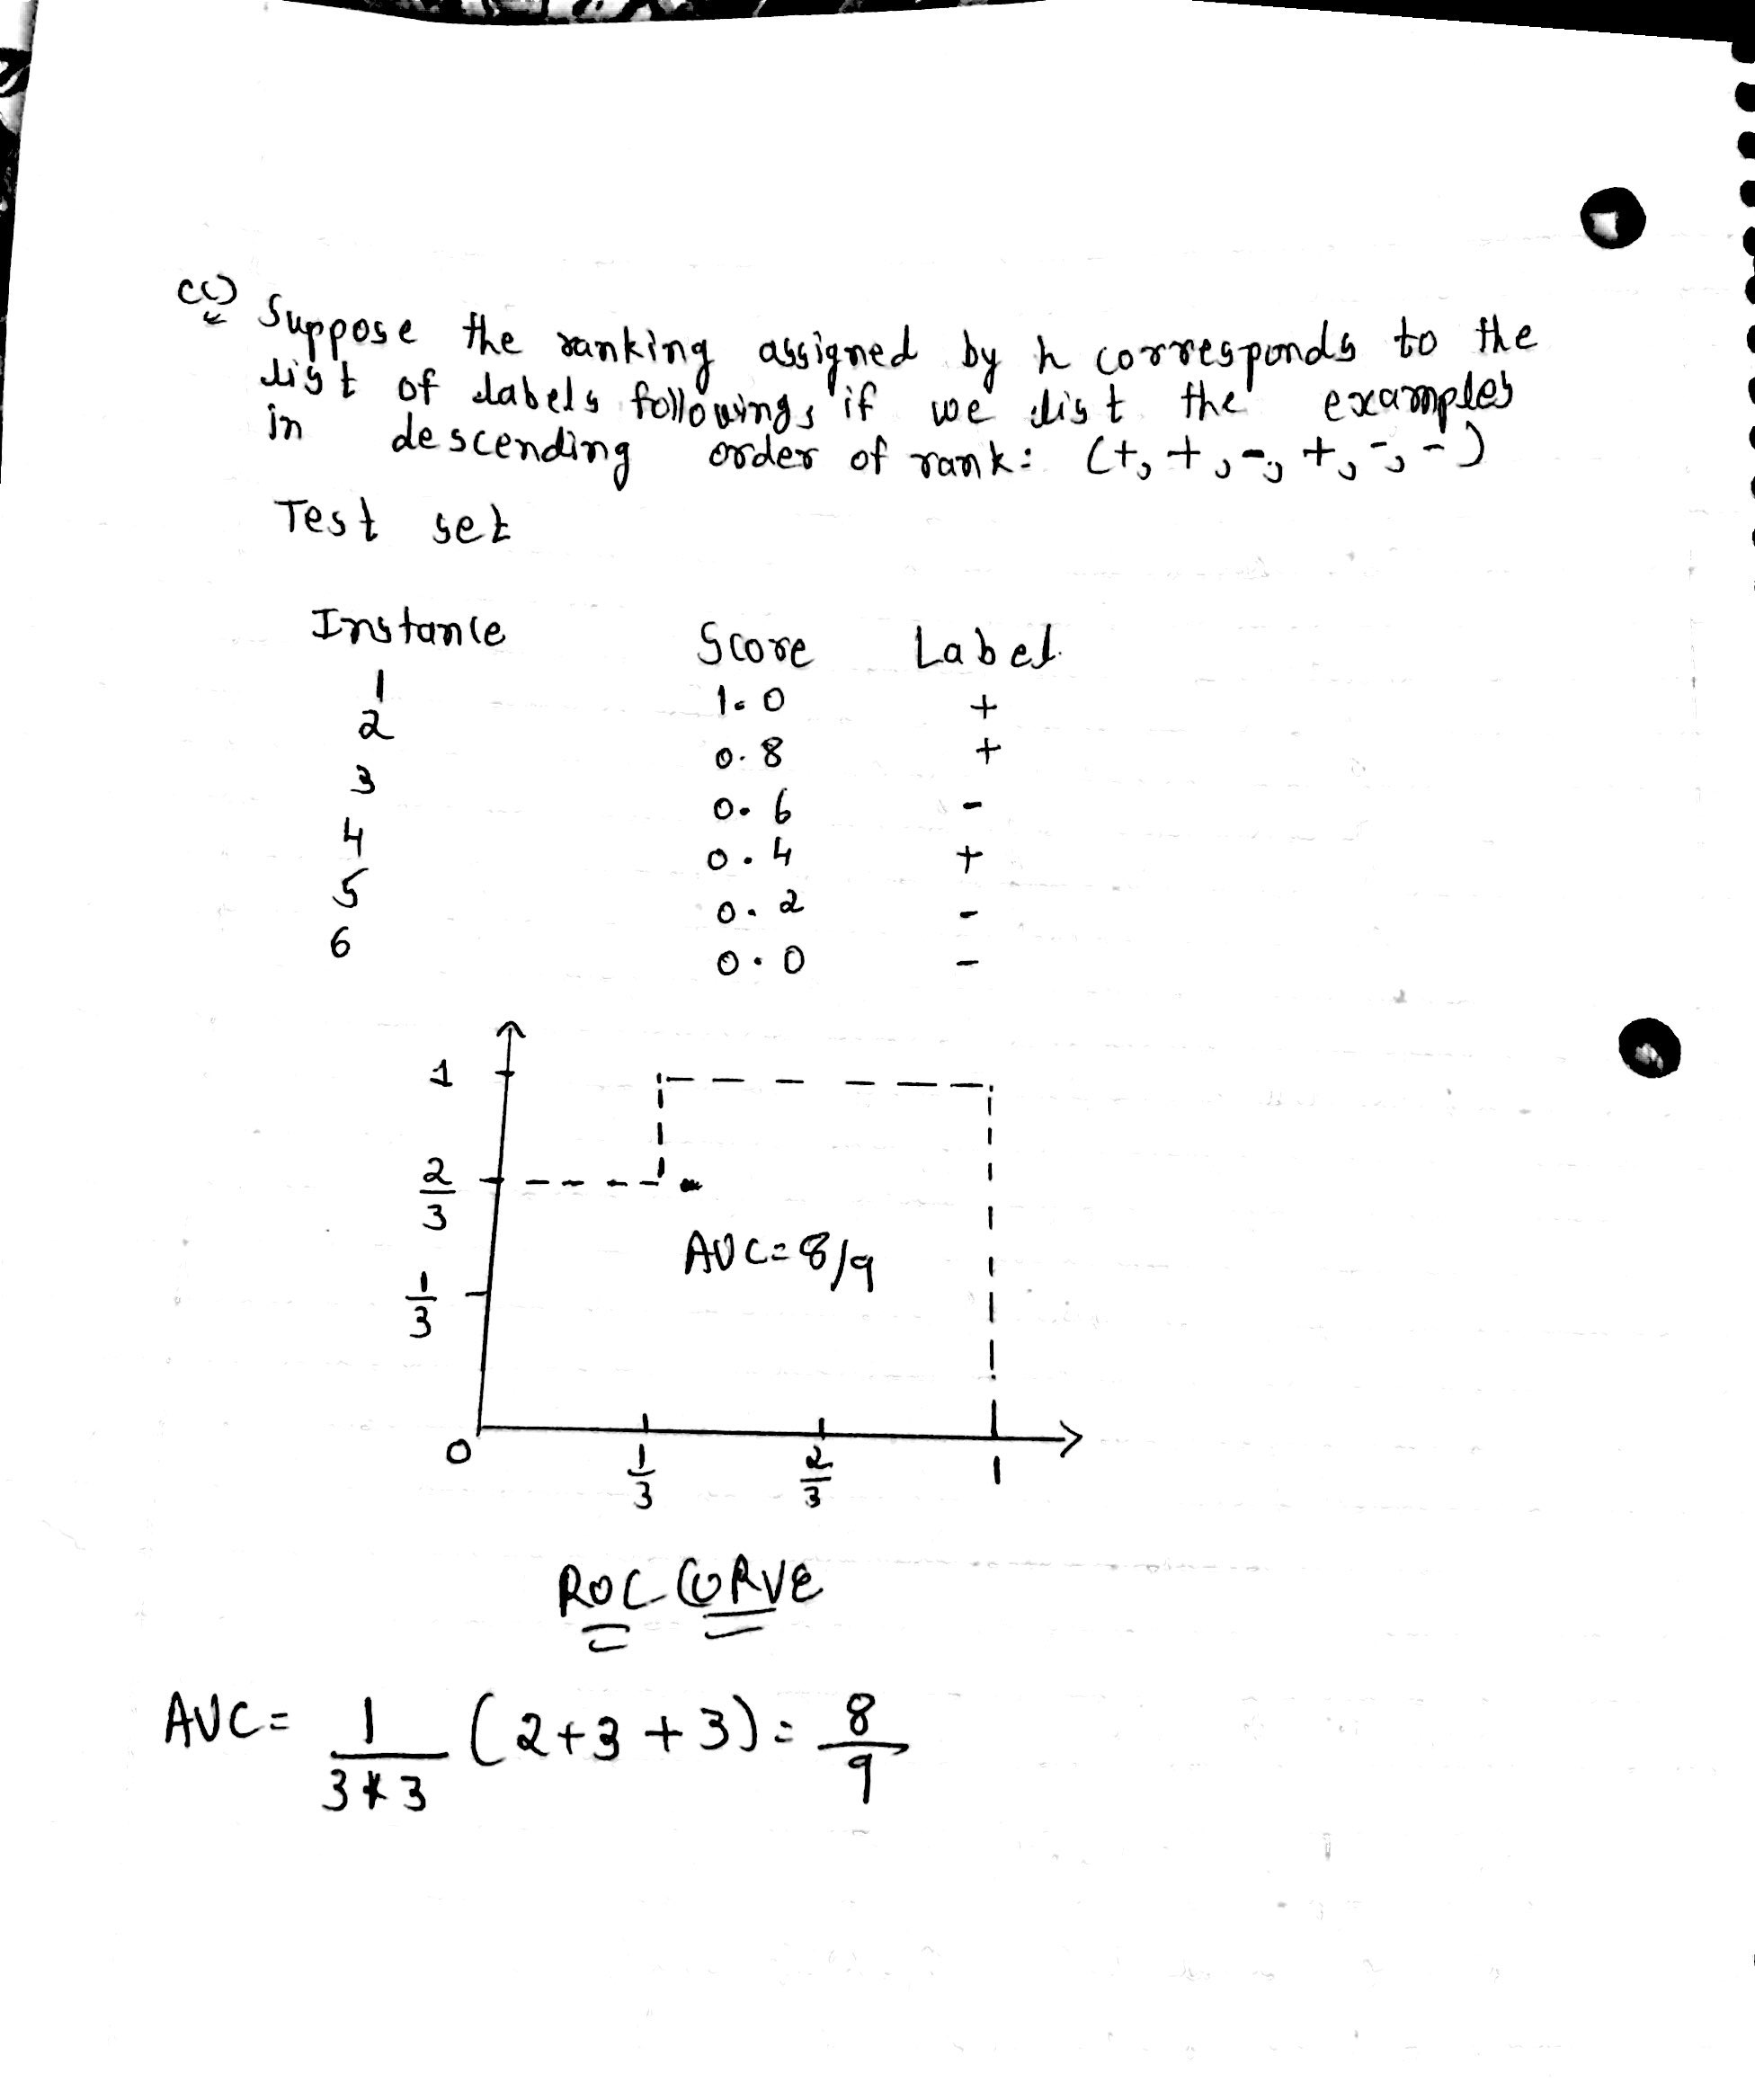 (c) Suppose the ranking assigned by h corresponds to the
list of labels followings if we list the examples
in descending order of rank: (+, +, -, +, -, -)
Test set
Instance Score Label
1 1.0 +
2 0.8 +
3 0.6 -
4 0.4 +
5 0.2 -
6 0.0 -
1
2/3
AUC=8/9
1/3
0 1/3 2/3 1
ROC CURVE
AUC= 1/3*3 (2+3+3)= 8/9